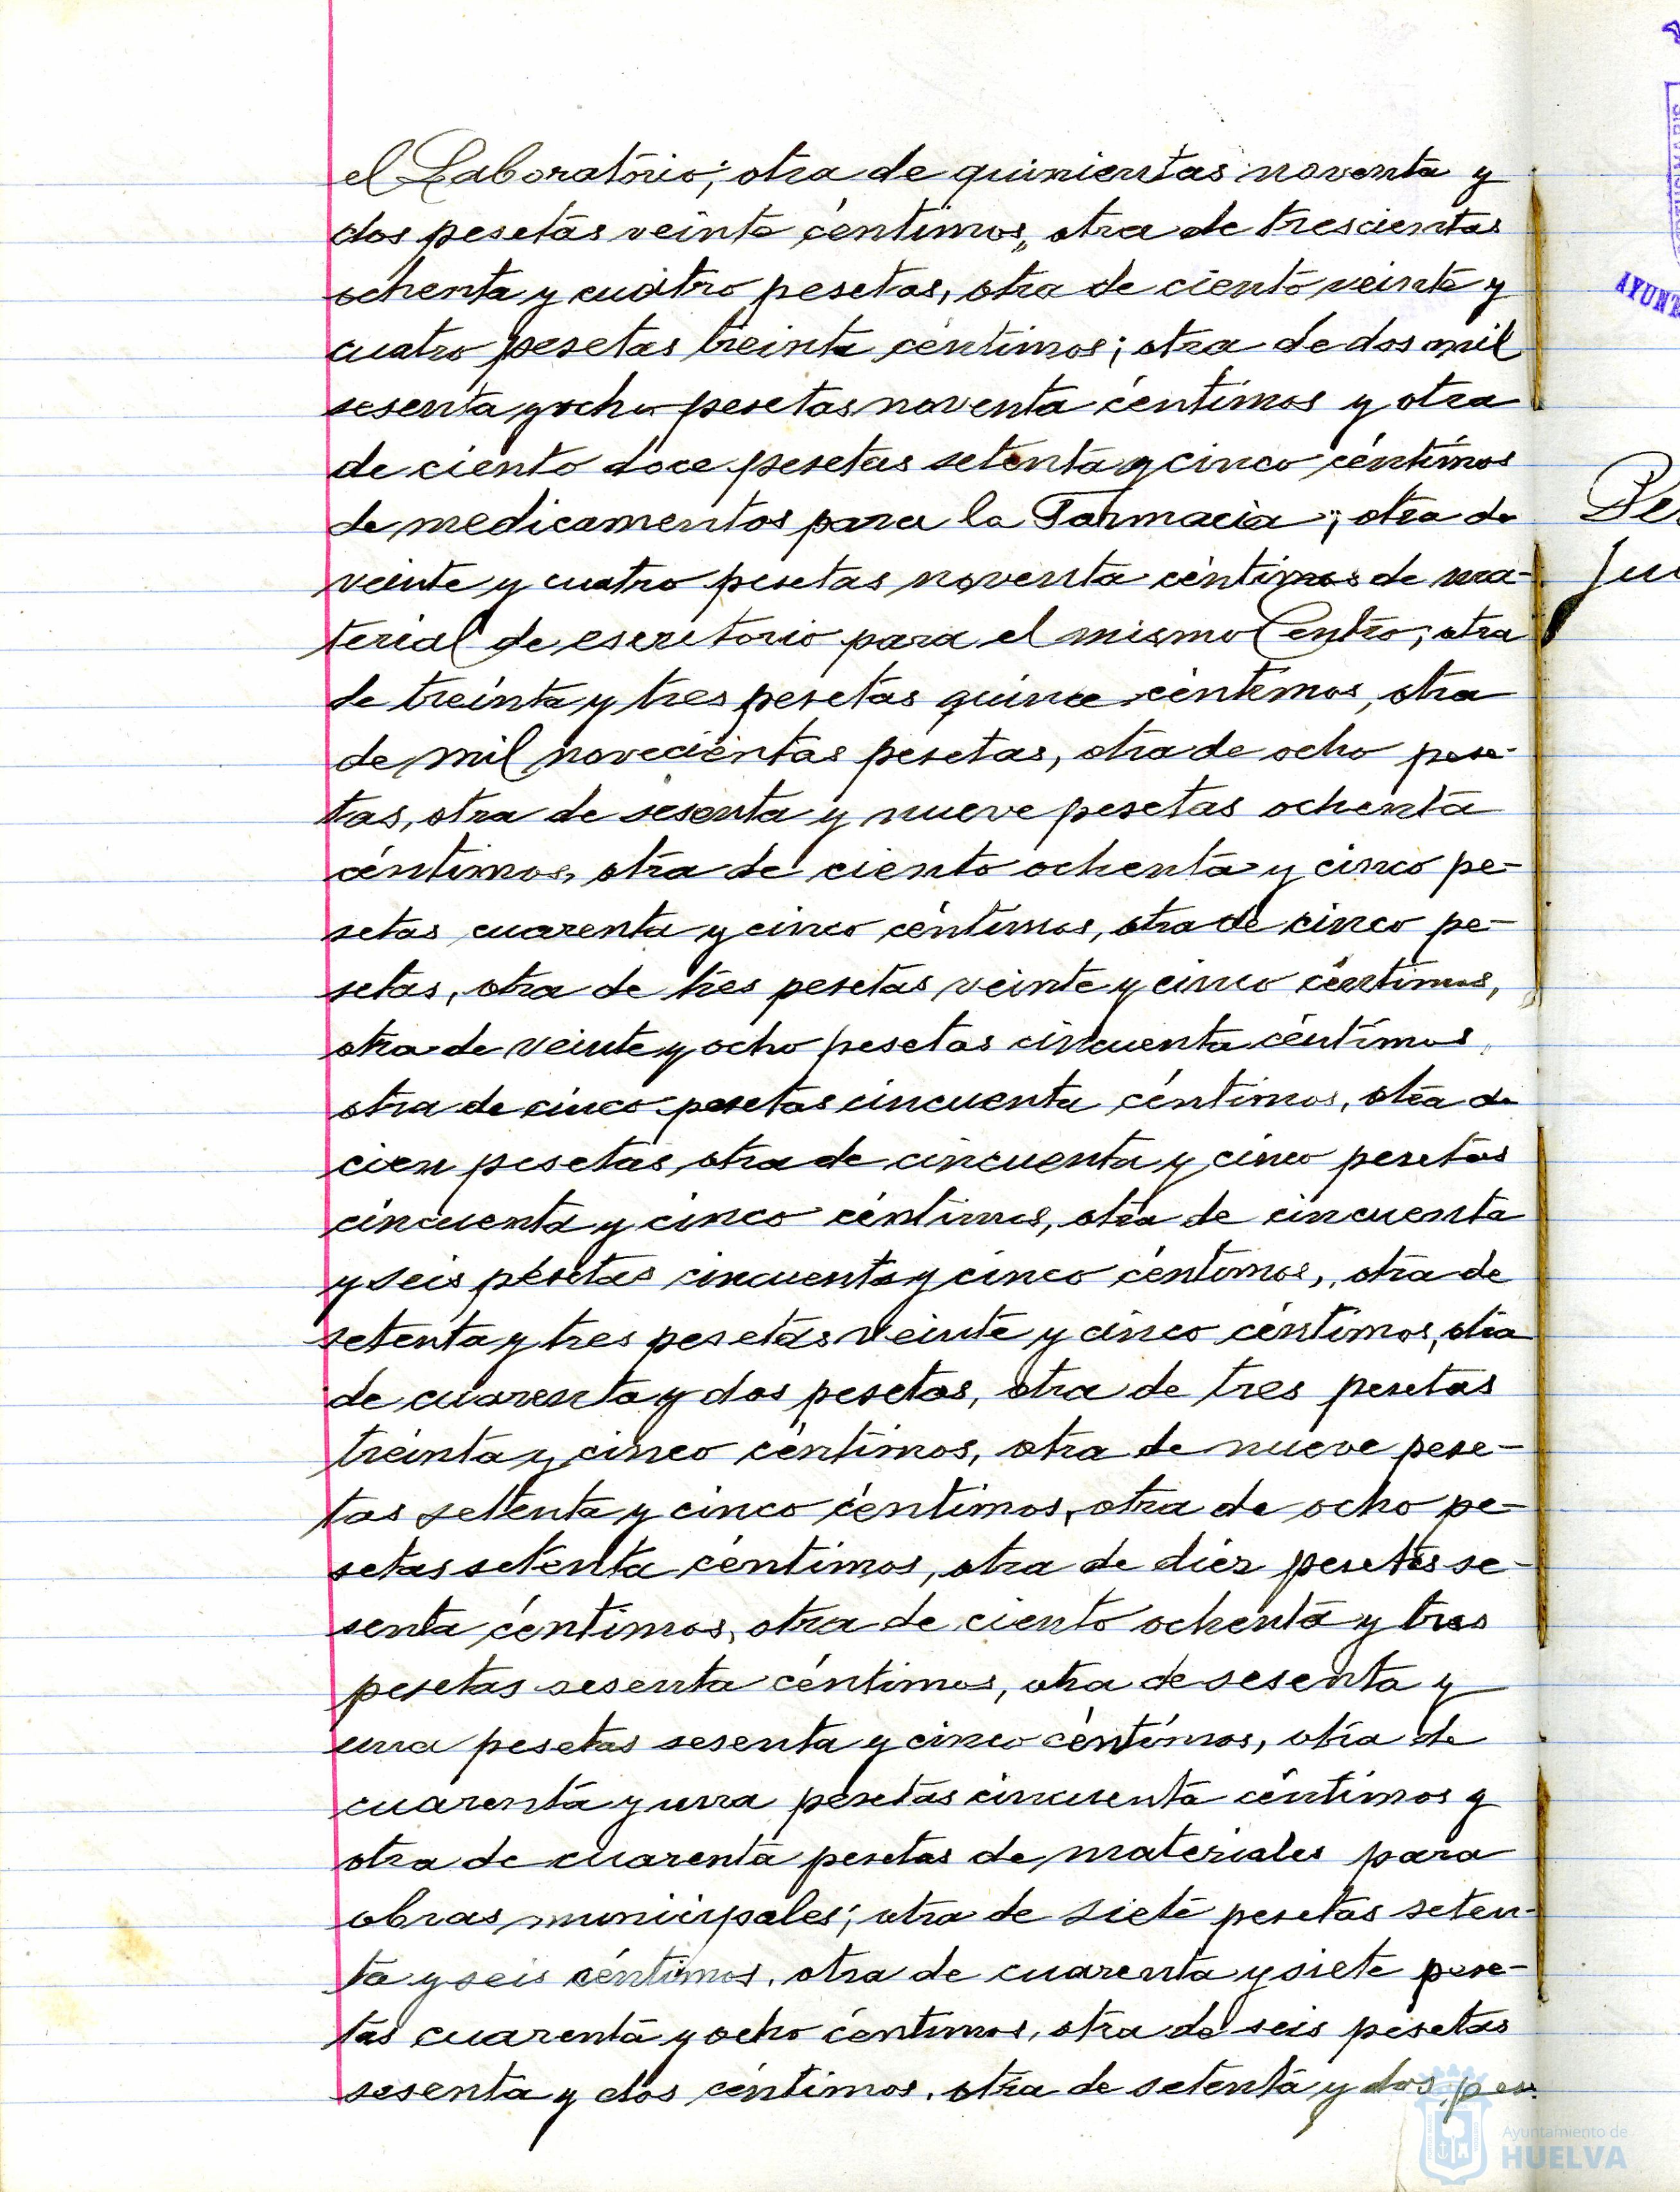 el Laboratorio; otra de quinientas noventa y
dos pesetas veinte céntimos, otra de trescientas
ochenta y cuatro pesetas, otra de ciento veinte y
cuatro pesetas treinta céntimos; otra de dos mil
sesenta y ocho pesetas noventa céntimos y otra
de ciento doce pesetas setenta y cinco céntimos
de medicamentos para la Farmacia; otra de
veinte y cuatro pesetas noventa céntimos de ma-
terial de escritorio para el mismo Centro; otra
de treinta y tres pesetas quince céntimos, otra
de mil novecientas pesetas, otra de ocho pese-
tas, otra de sesenta y nueve pesetas ochenta
céntimos, otra de ciento ochenta y cinco pe-
setas cuarenta y cinco céntimos, otra de cinco pe-
setas, otra de tres pesetas veinte y cinco céntimos,
otra de veinte y ocho pesetas cincuenta céntimos,
otra de cinco pesetas cincuenta céntimos, otra de
cien pesetas otra de cincuenta y cinco pesetas
cincuenta y cinco céntimos, otra de cincuenta
y seis pesetas cincuenta y cinco céntimos, otra de
setenta y tres pesetas veinte y cinco céntimos, otra
de cuarenta y dos pesetas, otra de tres pesetas
treinta y cinco céntimos, otra de nueve pese-
tas setenta y cinco céntimos, otra de ocho pe-
setas setenta céntimos, otra de diez pesetas se-
senta céntimos, otra de ciento ochenta y tres
pesetas sesenta céntimos, otra de sesenta y
una pesetas sesenta y cinco céntimos, otra de
cuarenta y una pesetas cincuenta céntimos y
otra de cuarenta pesetas de materiales para
obras municipales; otra de siete pesetas seten-
ta y seis céntimos, otra de cuarenta y siete pese-
tas cuarenta y ocho céntimos, otra de seis pesetas
sesenta y dos céntimos, otra de setenta y dos pes-
Ayuntamiento de
HUELVA